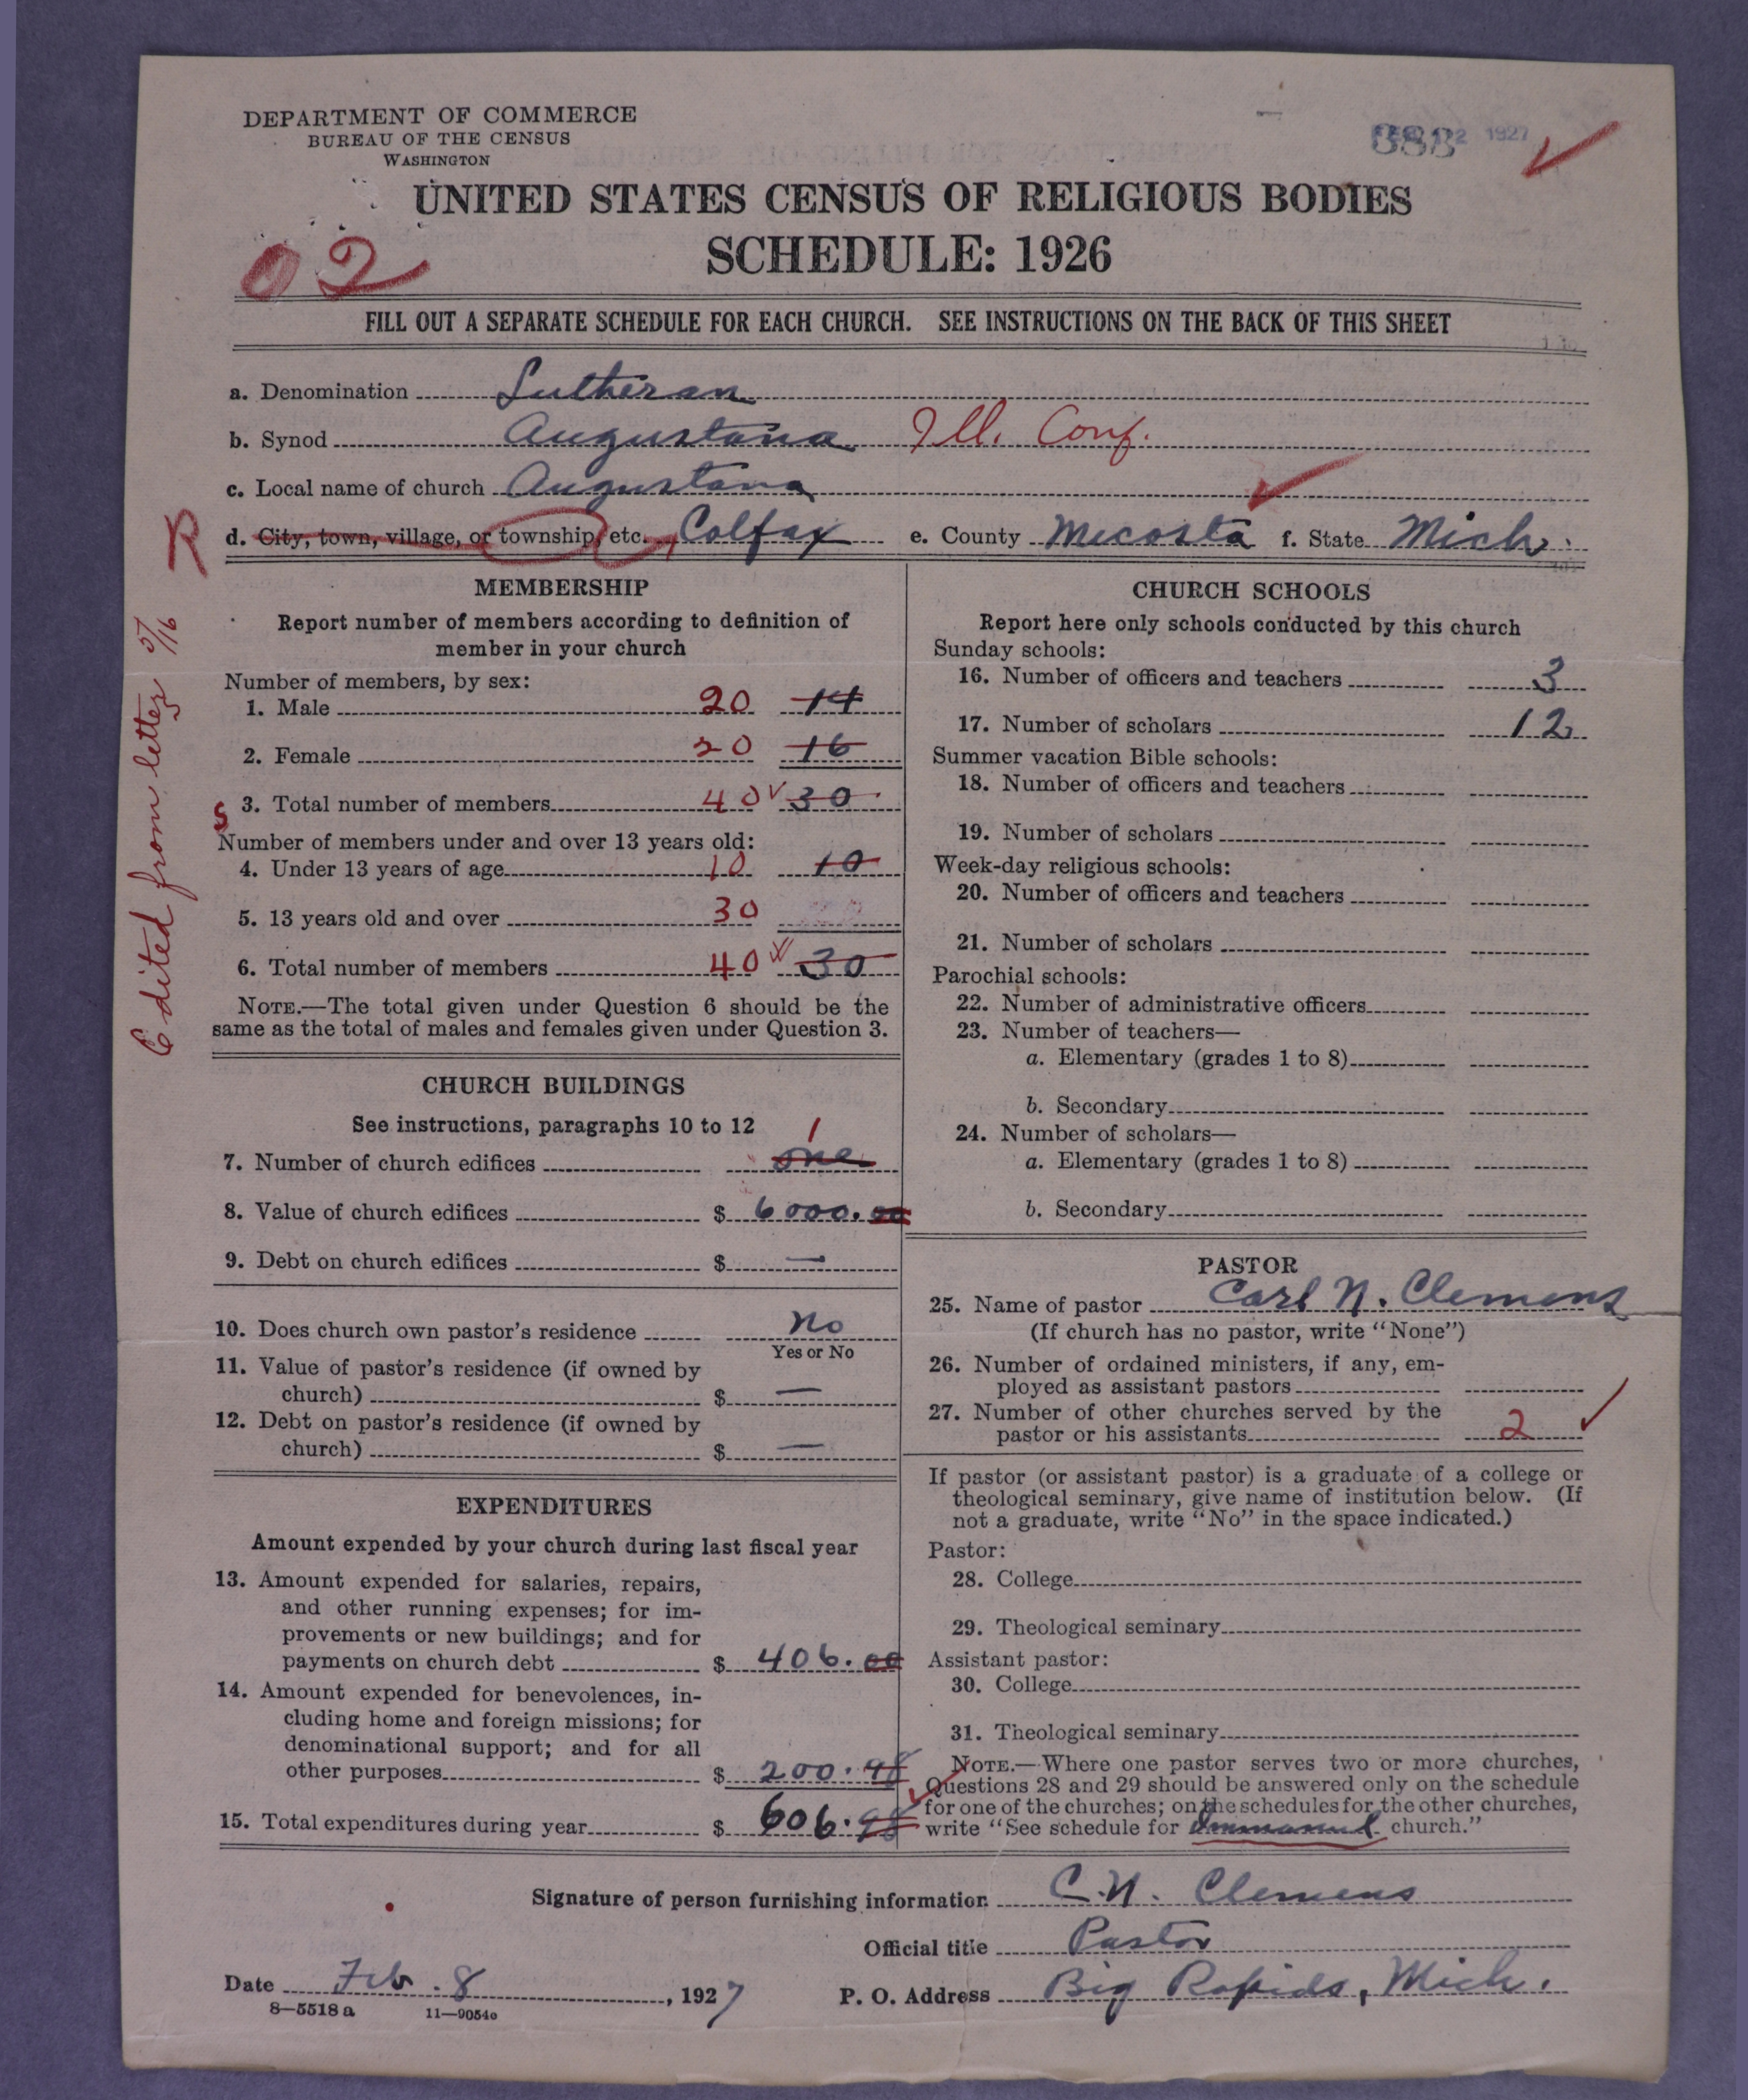 DEPARTMENT OF COMMERCE
BUREAU OF THE CENSUS
WASHINGTON
1927
UNITED STATES CENSUS OF RELIGIOUS BODIES
SCHEDULE: 1926
02
FILL OUT A SEPARATE SCHEDULE FOR EACH CHURCH. SEE INSTRUCTIONS ON THE BACK OF THIS SHEET
a. Denomination Lutheran
b. Synod Augustana Ill. Conf.
c. Local name of church Augustana
R d. City, town, village, or township, etc. Colfax e. County Mecosta f. State Mich.
Edited from letter 5/16
MEMBERSHIP
Report number of members according to definition of
member in your church
Number of members, by sex:
1. Male 20 14
2. Female 20 16
S 3. Total number of members 40 30
Number of members under and over 13 years old:
4. Under 13 years of age 10 10
5. 13 years old and over 30
6. Total number of members 40 30
NOTE.—The total given under Question 6 should be the
same as the total of males and females given under Question 3.
CHURCH BUILDINGS
See instructions, paragraphs 10 to 12
1
7. Number of church edifices one
8. Value of church edifices $ 6000.00
9. Debt on church edifices $ —
10. Does church own pastor's residence No
Yes or No
11. Value of pastor's residence (if owned by
church) $ —
12. Debt on pastor's residence (if owned by
church) $ —
EXPENDITURES
Amount expended by your church during last fiscal year
13. Amount expended for salaries, repairs,
and other running expenses; for im-
provements or new buildings; and for
payments on church debt $ 406.00
14. Amount expended for benevolences, in-
cluding home and foreign missions; for
denominational support; and for all
other purposes $ 200.98
15. Total expenditures during year $ 606.98
CHURCH SCHOOLS
Report here only schools conducted by this church
Sunday schools:
16. Number of officers and teachers 3
17. Number of scholars 12
Summer vacation Bible schools:
18. Number of officers and teachers
19. Number of scholars
Week-day religious schools:
20. Number of officers and teachers
21. Number of scholars
Parochial schools:
22. Number of administrative officers
23. Number of teachers—
a. Elementary (grades 1 to 8)
b. Secondary
24. Number of scholars—
a. Elementary (grades 1 to 8)
b. Secondary
PASTOR
25. Name of pastor Carl N. Clemens
(If church has no pastor, write "None")
26. Number of ordained ministers, if any, em-
ployed as assistant pastors
27. Number of other churches served by the
pastor or his assistants 2
If pastor (or assistant pastor) is a graduate of a college or
theological seminary, give name of institution below. (If
not a graduate, write "No" in the space indicated.)
Pastor:
28. College
29. Theological seminary
Assistant pastor:
30. College
31. Theological seminary
NOTE.—Where one pastor serves two or more churches,
Questions 28 and 29 should be answered only on the schedule
for one of the churches; on the schedules for the other churches,
write "See schedule for Immanuel church."
Signature of person furnishing information C. N. Clemens
Official title Pastor
Date Feb. 8, 1927 P. O. Address Big Rapids, Mich.
8—5518 a 11—9054c